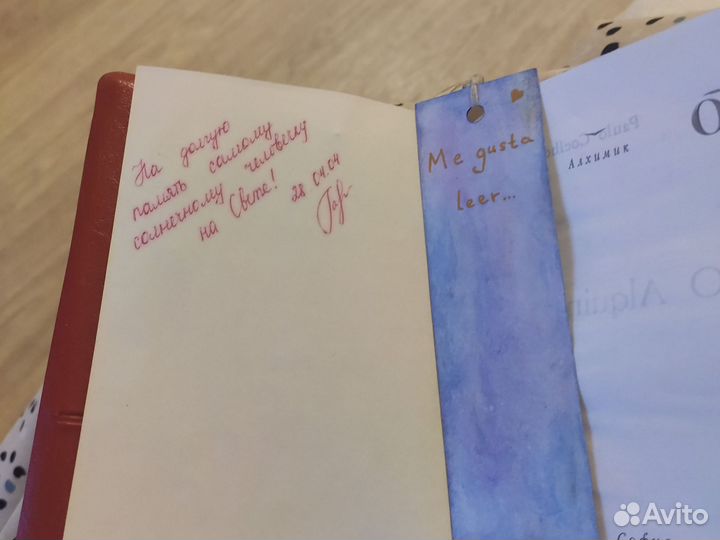 На долгую
память самому
солнечному человеку
на Свете!
28.04.04
Me gusta
leer...
Paulo Coelho
Алхимик
O Alquim
София
Avito